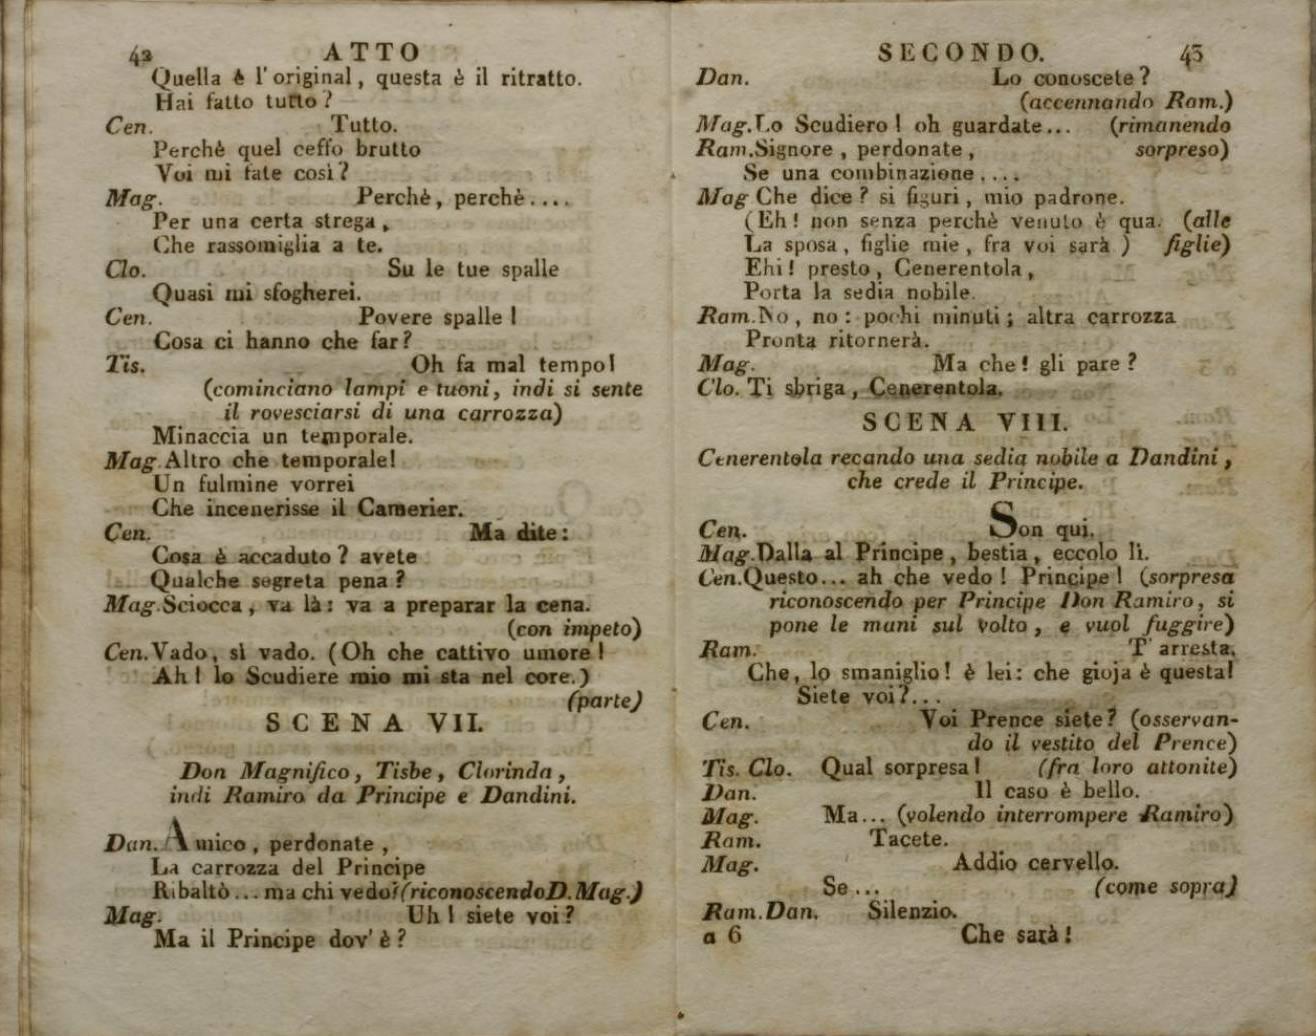 42 ATTO
Quella è l'original, questa è il ritratto.
Hai fatto tutto?
Cen. Tutto.
Perchè quel ceffo brutto
Voi mi fate così?
Mag. Perchè, perchè....
Per una certa strega,
Che rassomiglia a te.
Clo. Su le tue spalle
Quasi mi sfogherei.
Cen. Povere spalle!
Cosa ci hanno che far?
Tis. Oh fa mal tempo!
(cominciano lampi e tuoni, indi si sente
il rovesciarsi di una carrozza)
Minaccia un temporale.
Mag. Altro che temporale!
Un fulmine vorrei
Che incenerisse il Camerier.
Cen. Ma dite:
Cosa è accaduto? avete
Qualche segreta pena?
Mag. Sciocca, va là: va a preparar la cena.
(con impeto)
Cen. Vado, sì vado. (Oh che cattivo umore!
Ah! lo Scudiere mio mi sta nel core.)
(parte)
SCENA VII.
Don Magnifico, Tisbe, Clorinda,
indi Ramiro da Principe e Dandini.
Dan. Amico, perdonate,
La carrozza del Principe
Ribaltò... ma chi vedo? (riconoscendo D. Mag.)
Mag. Uh! siete voi?
Ma il Principe dov'è?
SECONDO. 43
Dan. Lo conoscete?
(accennando Ram.)
Mag. Lo Scudiero! oh guardate... (rimanendo
Ram. Signore, perdonate, sorpreso)
Se una combinazione....
Mag Che dice? si figuri, mio padrone.
(Eh! non senza perchè venuto è qua. (alle
La sposa, figlie mie, fra voi sarà) figlie)
Ehi! presto, Cenerentola,
Porta la sedia nobile.
Ram. No, no: pochi minuti; altra carrozza
Pronta ritornerà.
Mag. Ma che! gli pare?
Clo. Ti sbriga, Cenerentola.
SCENA VIII.
Cenerentola recando una sedia nobile a Dandini,
che crede il Principe.
Cen. Son qui.
Mag. Dalla al Principe, bestia, eccolo lì.
Cen. Questo... ah che vedo! Principe! (sorpresa
riconoscendo per Principe Don Ramiro, si
pone le mani sul volto, e vuol fuggire)
Ram. T' arresta.
Che, lo smaniglio! è lei: che gioja è questa!
Siete voi?...
Cen. Voi Prence siete? (osservan-
do il vestito del Prence)
Tis. Clo. Qual sorpresa! (fra loro attonite)
Dan. Il caso è bello.
Mag. Ma... (volendo interrompere Ramiro)
Ram. Tacete.
Mag. Addio cervello.
Se... (come sopra)
Ram. Dan. Silenzio.
a 6 Che sarà!